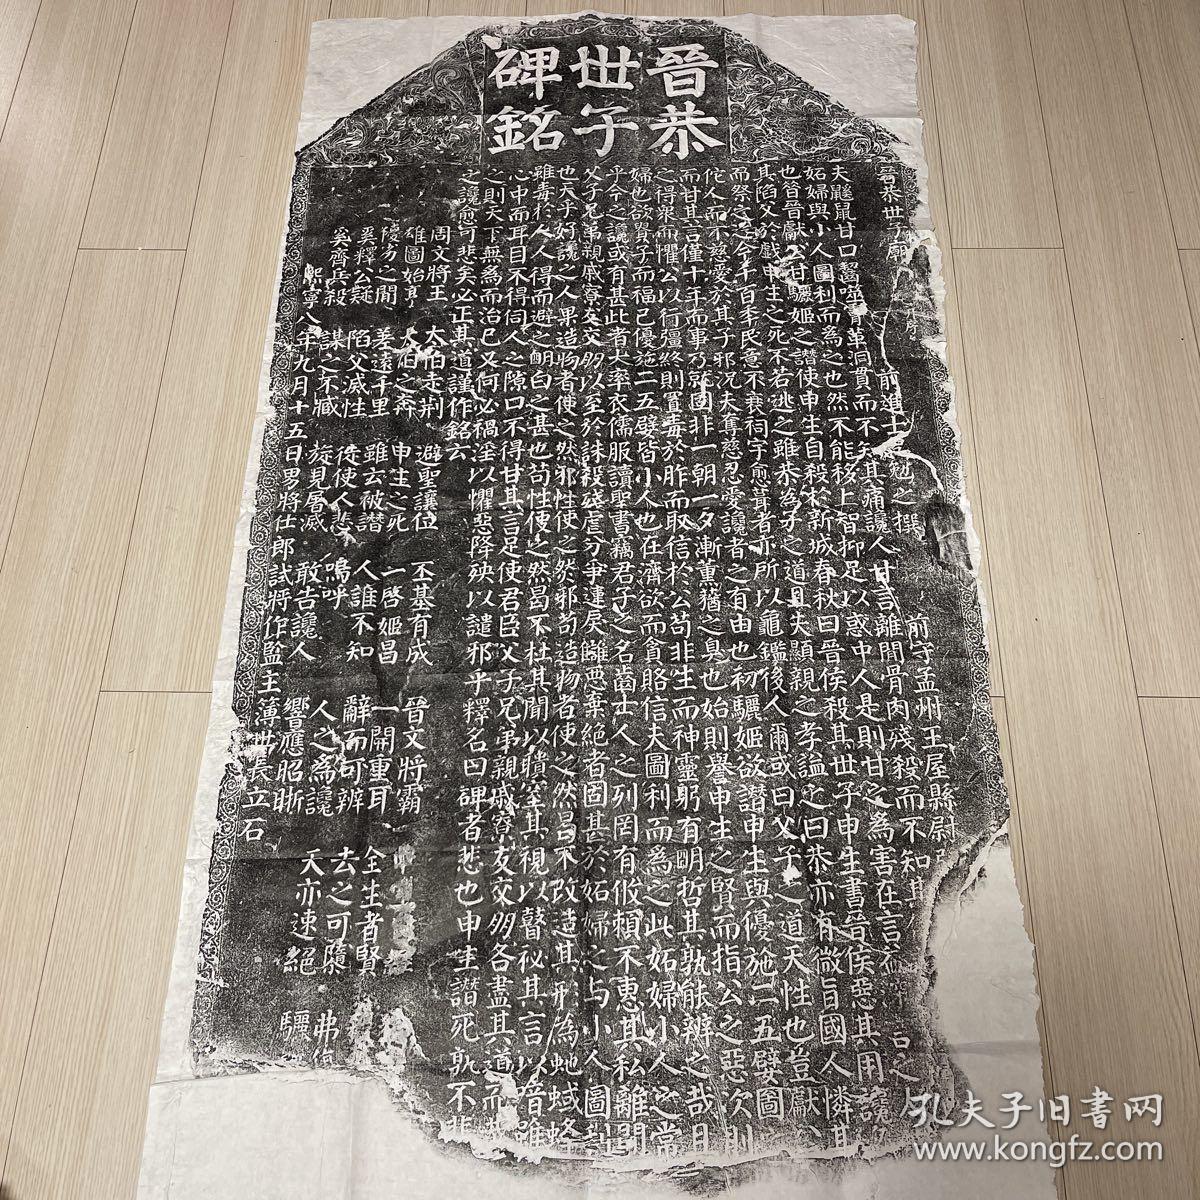 晉恭
世子
碑銘
晉恭世子廟 序
前進士 勉之撰 前守孟州王屋縣尉
夫鼷鼠甘口齧噬 革洞貫而不知其痛讒人甘言離間骨肉殘殺而不知其
妬婦與小人圖利而為之也然不能移上智抑足以惑中人是則甘之為害在言
也昔晉獻公甘驪姬之譖使申生自殺於新城春秋曰晉侯殺其世子申生書晉侯惡其用讒
其陷父於戲申生之死不若逃之雖恭為子之道且夫顯親之孝謚之曰恭亦有微旨國人憐其
而祭之迄今千百年民意不衰祠宇愈葺者亦所以龜鑑後人爾或曰父子之道天性也豈獻公
佗人而不慈愛於其子邪況夫奪慈忍愛讒者之有由也初驪姬欲譖申生與優施二五嬖圖
而甘其言僅十年而事乃就固非一朝一夕漸薰蕕之臭也始則譽申生之賢而指公之惡次則
之得衆而懼公以行彊終則置毒於胙而取信於公苟非生而神靈躬有明哲其孰能辨之哉且
婦也欲貴子而福己優施二五嬖皆小人也在濟欲而貪賂信夫圖利而為之此妬婦小人之常
乎今之讒或有甚此者大率衣儒服讀聖書竊君子之名齒士人之列罔有攸賴不惠其私離間
父子兄弟親戚寮友交朋以至於誅殺殘虐分爭違戾讎惡棄絕者固甚於妬婦之與小人圖利
也夫乎好讒之人果造物者使之然邪性使之然邪苟造物者使之然曷不改造其形為虵蜮蜂
雖毒於人人得而避之明白之甚也苟性使之然曷不杜其聞以聵塞其視以瞽祕其言以喑雖
心中而耳目不得伺人之隙口不得甘其言足使君臣父子兄弟親戚寮友交朋各盡其道而
之則天下無為而治已又何必禍淫以懼惡降殃以譴邪乎釋名曰碑者悲也申生譖死孰不悲
之讒愈可悲矣必正其道謹作銘云
周文將王 太伯走荆 避聖讓位 丕基有成 晉文將霸
雄圖始亨 太伯之奔 申生之死 一啓姬昌 一開重耳 全生者賢
陵夷之間 差遠千里 雖云被譖 人誰不知 辭而可辨 去之可隨
奚釋公疑 陷父滅性 徒使人悲 嗚呼 人之為讒 天亦速絕 弗
奚齊兵殺 謀之不臧 旋見屠滅 敢告讒人 響應昭晣 驪
熙寧八年九月十五日男將仕郎試將作監主薄世長立石
孔夫子旧書网
www.kongfz.com